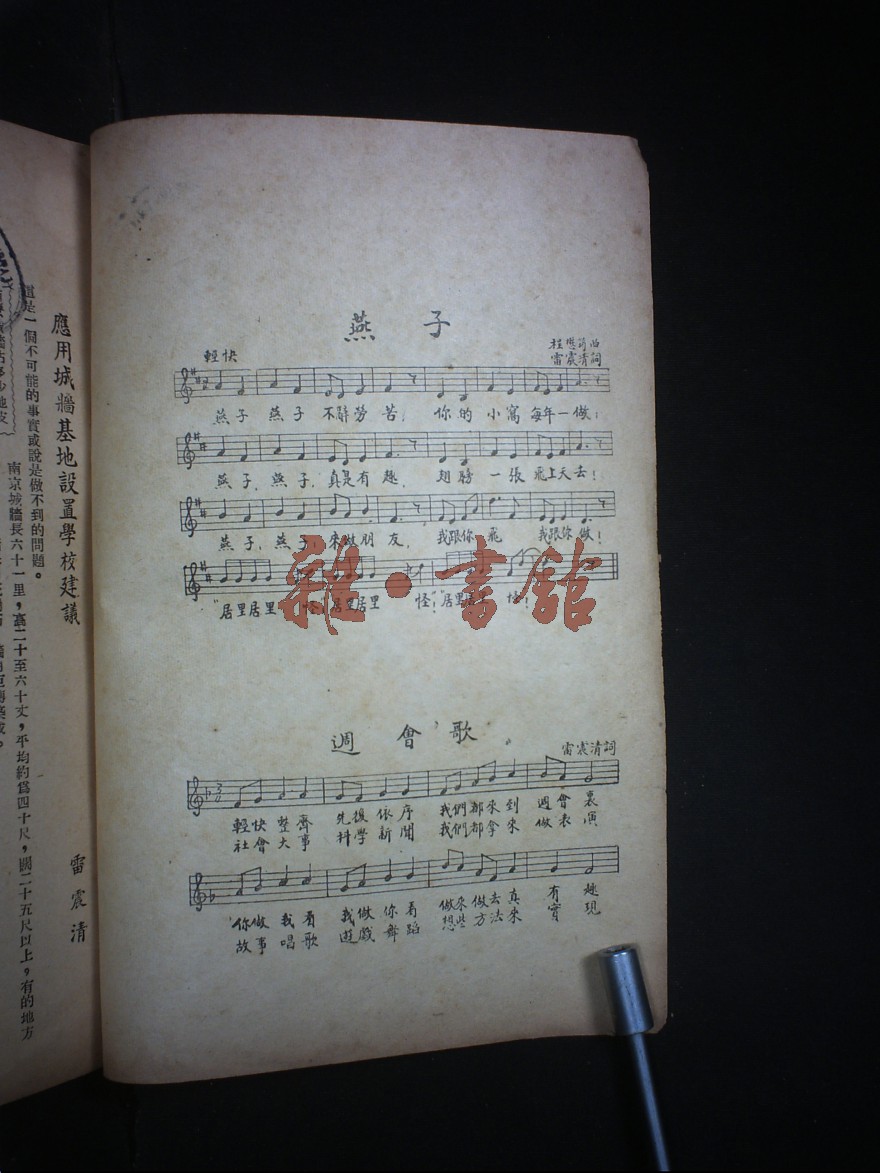 燕子
輕快
雷震清詞
燕子 燕子 不辭勞苦, 你的小窩每年一做;
燕子, 燕子, 真是有趣, 翅膀一張飛上天去!
燕子, 燕子, 來做朋友, 我跟你飛 我跟你做!
"居里居里 居里 怪!"居里
雜·書館
週會歌
雷震清詞
輕快整齊 先後依序 我們都來到 週會裏
社會大事 科學新聞 我們都拿來 做表演
你做我看 我做你看 做來做去真有趣
故事唱歌 遊戲舞蹈 想些方法來實現
應用城牆基地設置學校建議
雷震清
這是一個不可能的事實或說是做不到的問題。
南京城牆長六十一里,高二十至六十丈,平均約爲四十尺,闊二十五尺以上,有的地方